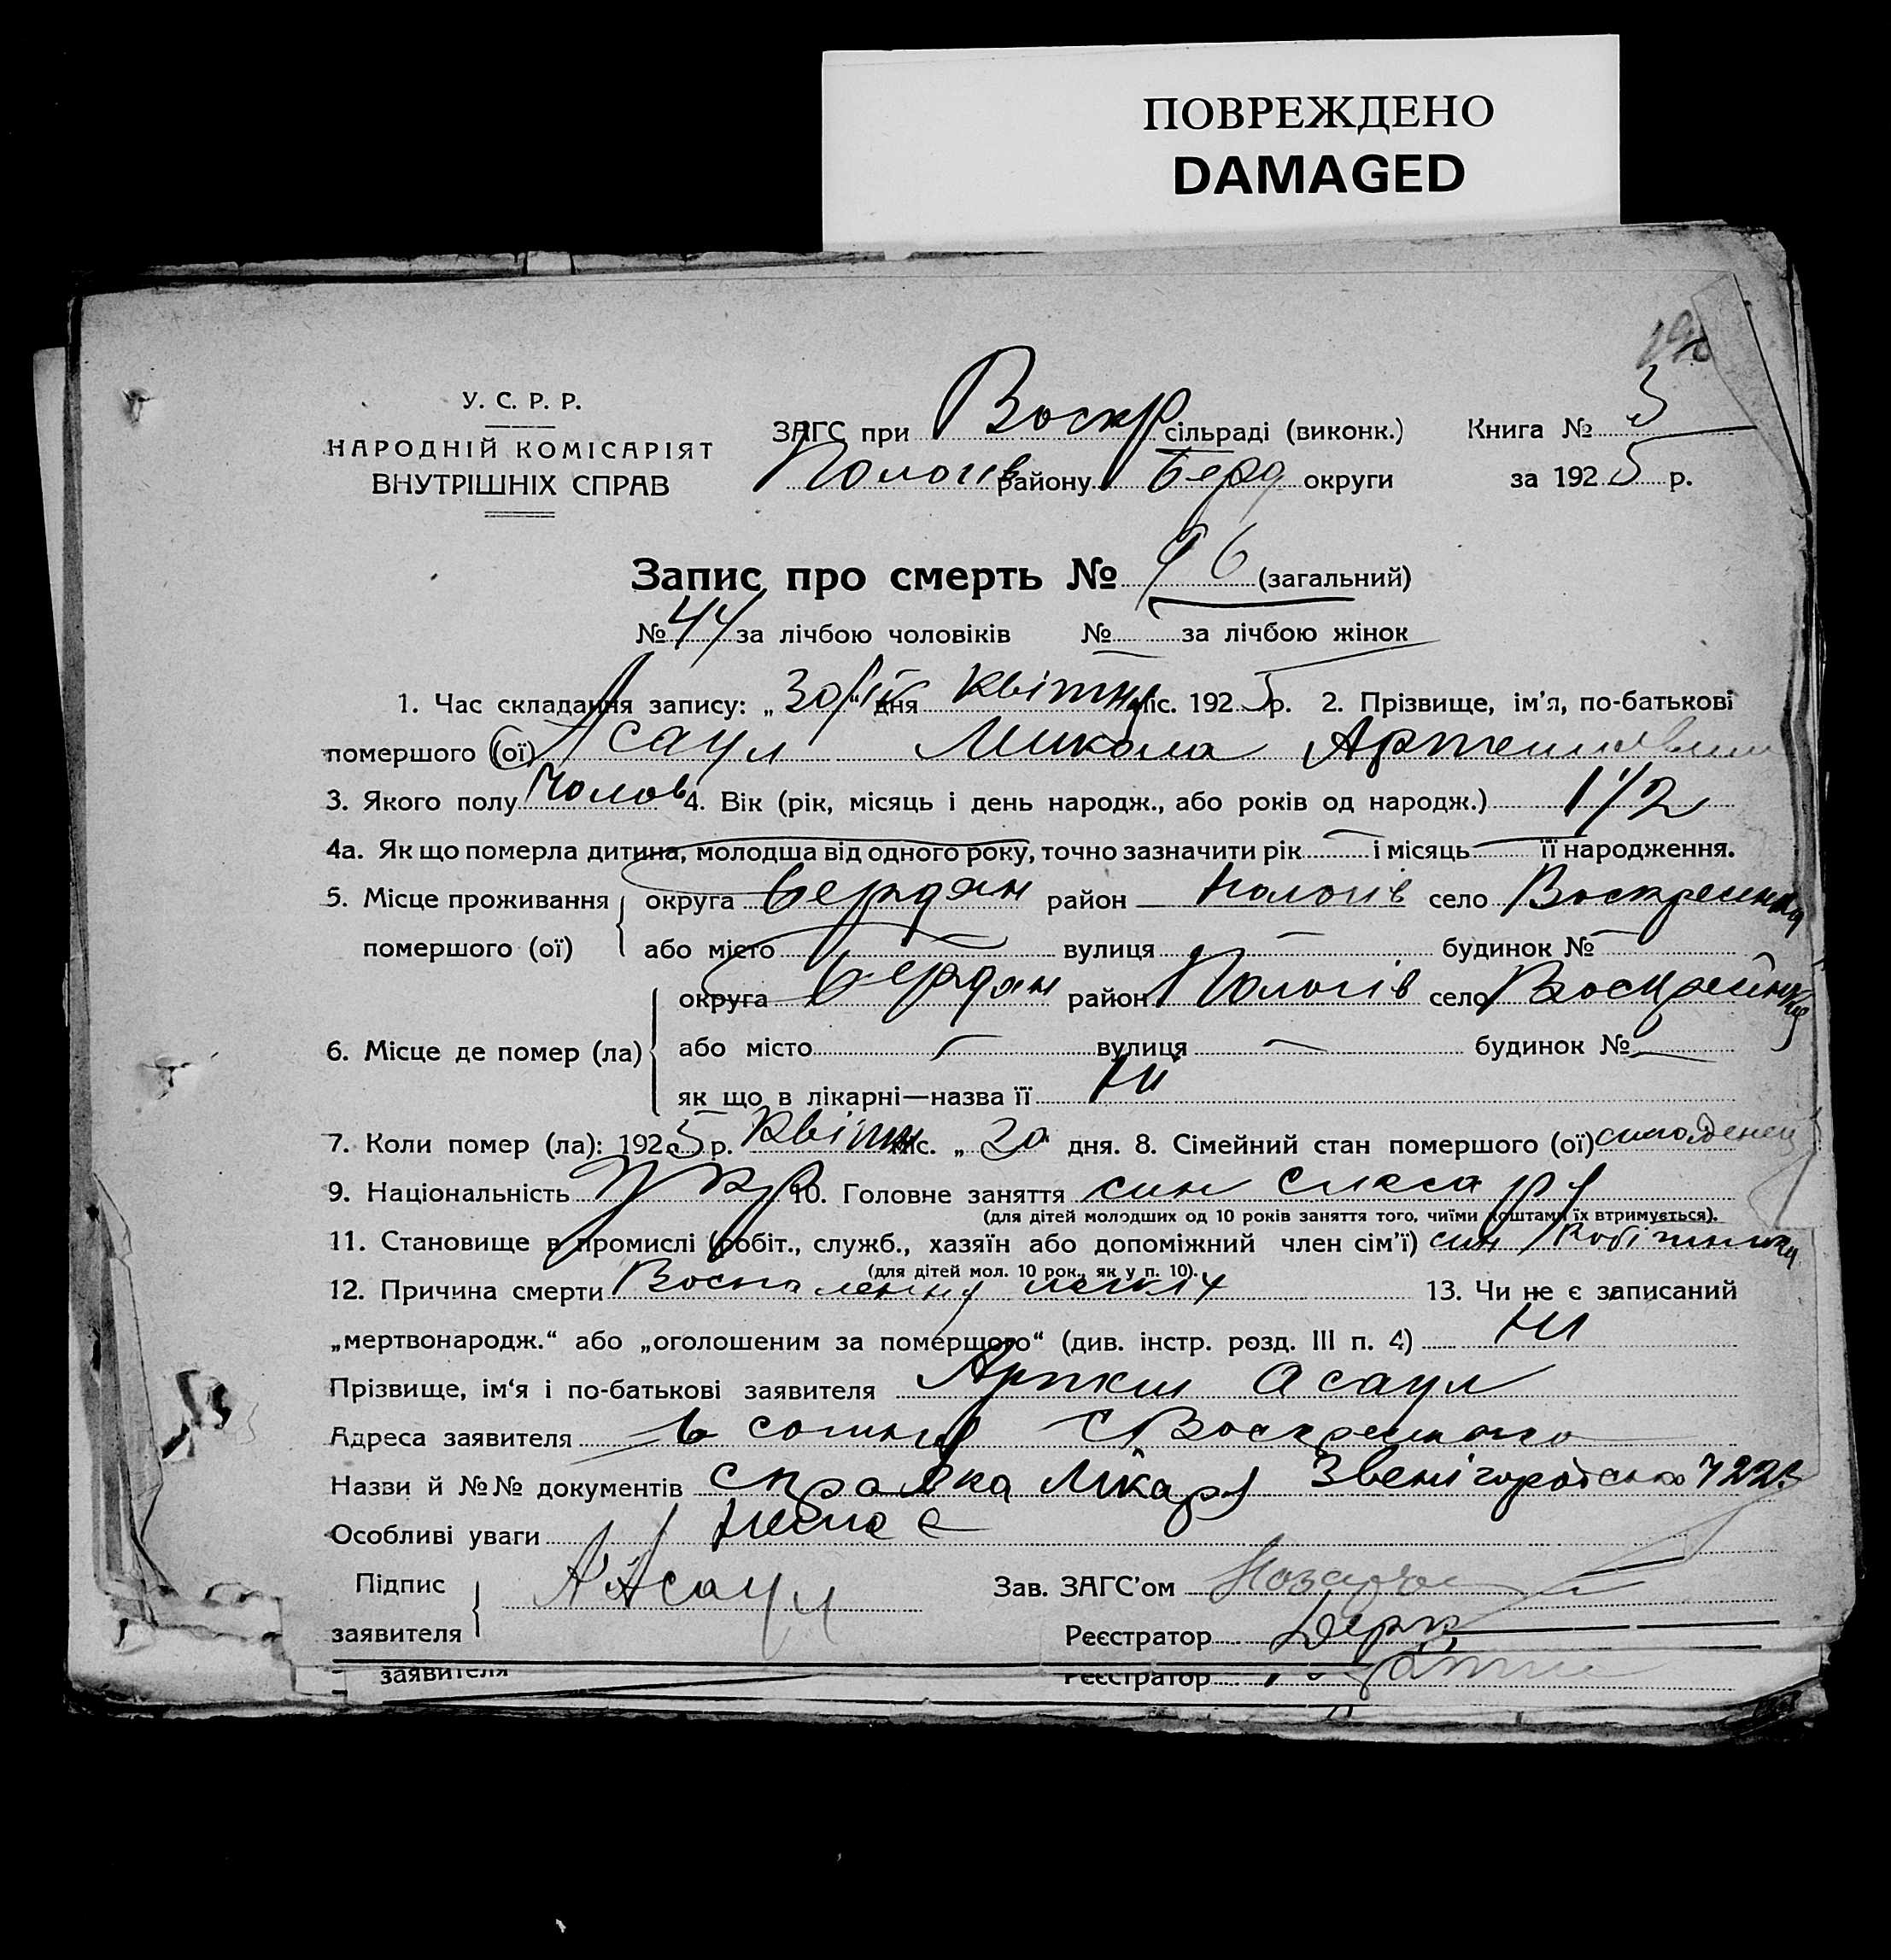 ПОВРЕЖДЕНО
DAMAGED
У. С. Р. Р.
НАРОДНІЙ КОМІСАРІЯТ
ВНУТРІШНІХ СПРАВ
ЗАГС при Воскр сільраді (виконк.) Книга № 5
Пологів району Берд округи за 1925 р.
Запис про смерть № 96 (загальний)
№ 44 за лічбою чоловіків № за лічбою жінок
1. Час складання запису: „30" дня квітня міс. 1925 р. 2. Прізвище, ім'я, по-батькові
помершого (ої) Асаул Микола
3. Якого полу Чолов 4. Вік (рік, місяць і день народж., або років од народж.) 1 1/2
4а. Як що померла дитина, молодша від одного року, точно зазначити рік і місяць її народження.
5. Місце проживання округа Бердян район Пологів село Воскреинка
помершого (ої) або місто вулиця будинок №
округа Бердян район Пологів село
6. Місце де помер (ла) або місто вулиця будинок №
як що в лікарні—назва її Ні
7. Коли помер (ла): 1925 р. Квітн міс. „20" дня. 8. Сімейний стан помершого (ої)
9. Національність Укр 10. Головне заняття син слесаря
(для дітей молодших од 10 років заняття того, чиїми коштами їх втримується).
11. Становище в промислі (робіт., служб., хазяїн або допоміжний член сім'ї) син Робітника
(для дітей мол. 10 рок., як у п. 10).
12. Причина смерти Воспалення легких 13. Чи не є записаний
„мертвонародж.“ або „оголошеним за померщого“ (див. інстр. розд. III п. 4) Ні
Прізвище, ім'я і по-батькові заявителя Асаул
Адреса заявителя
Назви й №№ документів справка Лікаря Звенігородського
Особливі уваги Немає
Підпис А Асаул Зав. ЗАГС'ом
заявителя Реєстратор
заявителя Реєстратор